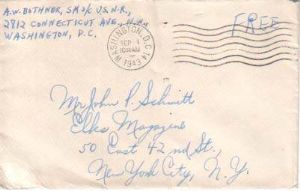 A.W. BOTHNER, SM3/c U.S.N.R.,
2812 CONNECTICUT AVE., N.W.
WASHINGTON, D.C.
WASHINGTON, D.C. 14
SEP 1
10 AM
1943
FREE
Mr John P. Schmitt
Elks Magazine
50 East 42nd St.,
New York City, N.Y.